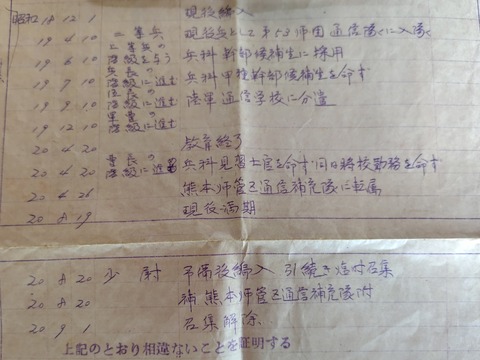 昭和18 12 1 現役編入
19 4 10 二等兵 現役兵として第53師団通信隊に入隊
19 6 10 上等兵の階級を与う 兵科幹部候補生に採用
19 7 10 兵長の階級に進む 兵科甲種幹部候補生を命ず
19 9 10 伍長の階級に進む 陸軍通信学校に分遣
19 12 10 軍曹の階級に進む
20 4 20 教育終了
20 4 20 曹長の階級に進む 兵科見習士官を命ず 同日将校勤務を命ず
20 4 26 熊本師管区通信補充隊に転属
20 8 19 現役満期
20 8 20 少尉 予備役編入 引続き 召集
20 8 20 補 熊本師管区通信補充隊附
20 9 1 召集解除
上記のとおり相違ないことを証明する